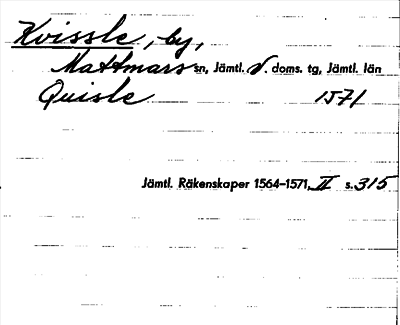 Kvissle, by,
Mattmars sn, Jämtl. V. doms. tg, Jämtl. län
Quisle 1571
Jämtl. Räkenskaper 1564-1571, II s. 315